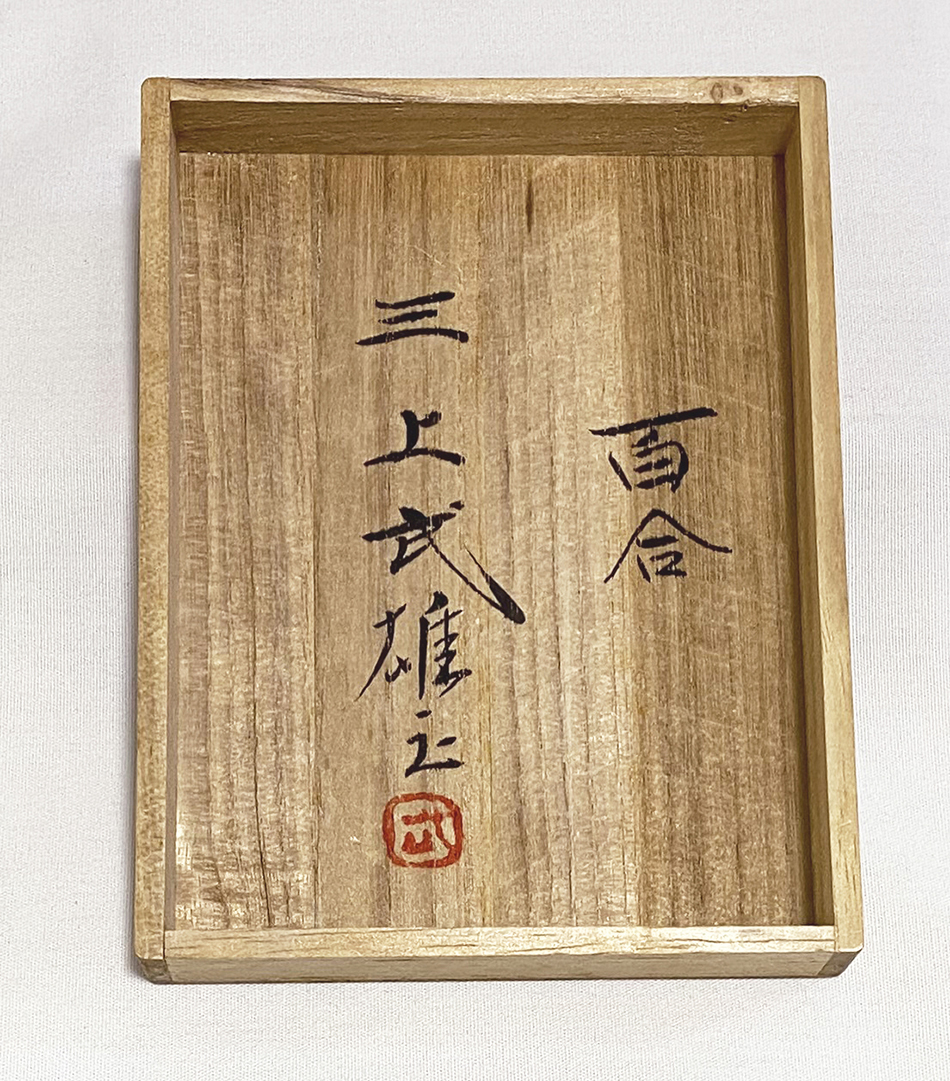 百合
三上武雄
武